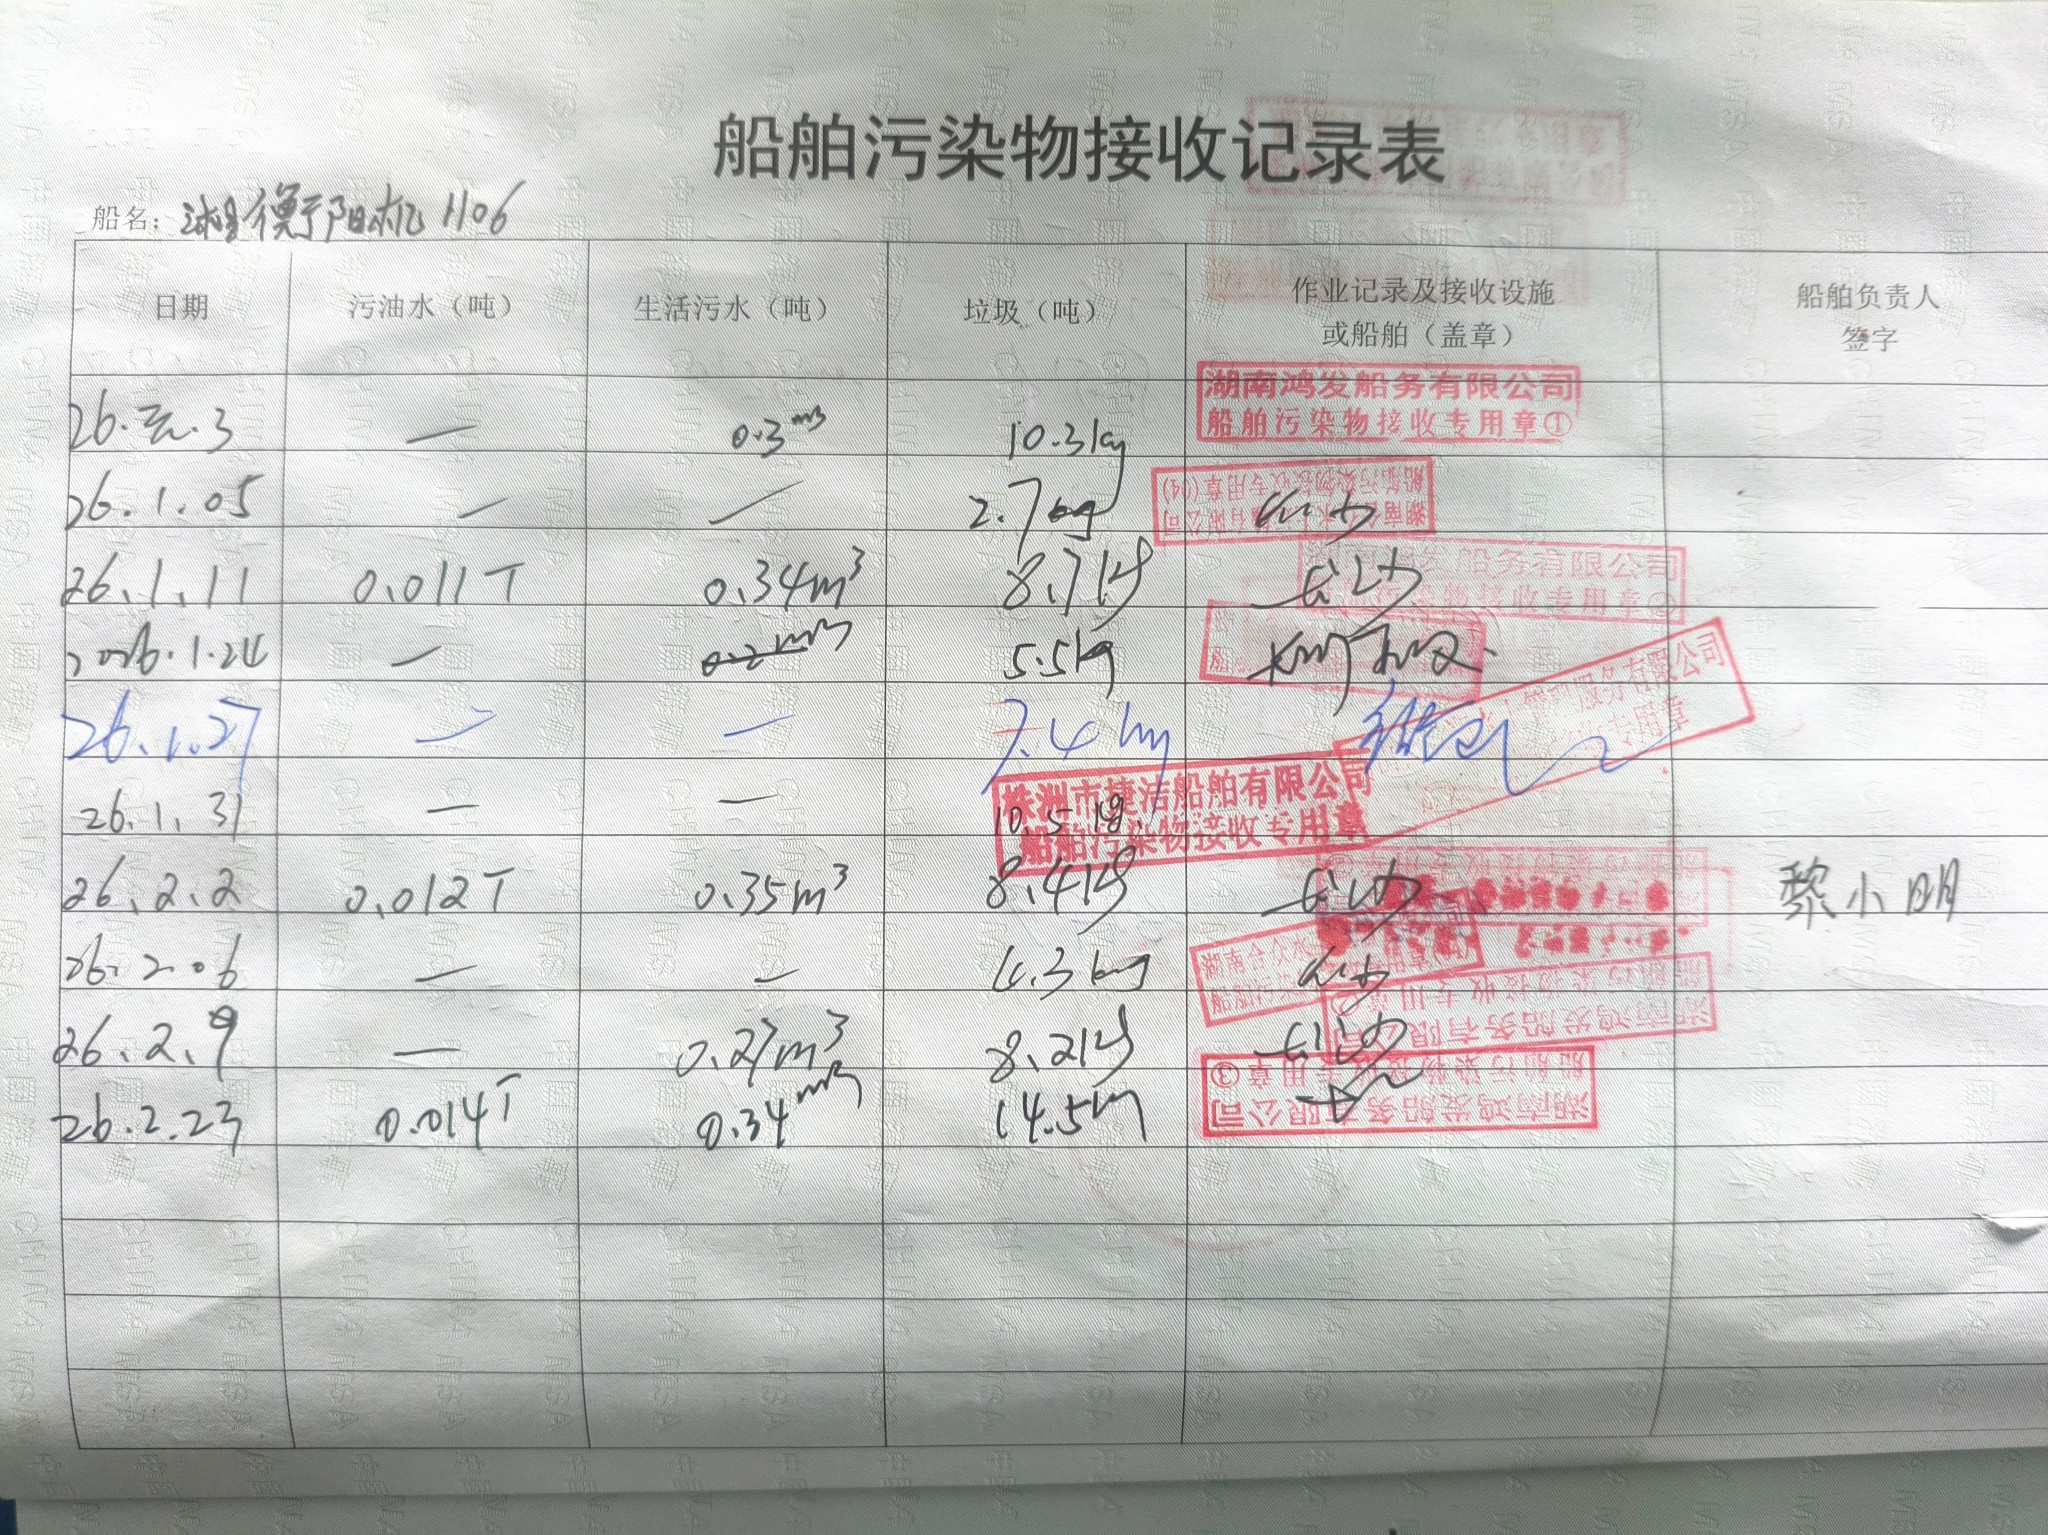 船舶污染物接收记录表
船名： 衡阳机 1106
日期 污油水（吨） 生活污水（吨） 垃圾（吨） 作业记录及接收设施或船舶（盖章） 船舶负责人签字
湖南鸿发船务有限公司
船舶污染物接收专用章①
26.元.3 — 0.3m³ 10.3kg
26.1.05 — — 2.7kg 长沙
船舶污染物接收专用章(04)
26.1.11 0.011T 0.34m³ 8.7kg 长沙
湖南鸿发船务有限公司
污染物接收专用章②
2026.1.24 — 0.2m³ 5.5kg
26.1.27 — — 7.4kg
服务有限公司
专用章
26.1.31 — — 10.5kg
株洲市捷洁船舶有限公司
船舶污染物接收专用章
26.2.2 0.012T 0.35m³ 8.4kg 长沙 黎小明
26.2.06 — — 4.3kg 长沙
湖南合众水
船舶污染
26.2.9 — 0.27m³ 8.2kg 长沙
湖南鸿发船务有限公司
船舶污染物接收专用章②
26.2.23 0.014T 0.34m³ 14.5kg
湖南鸿发船务有限公司
船舶污染物接收专用章③